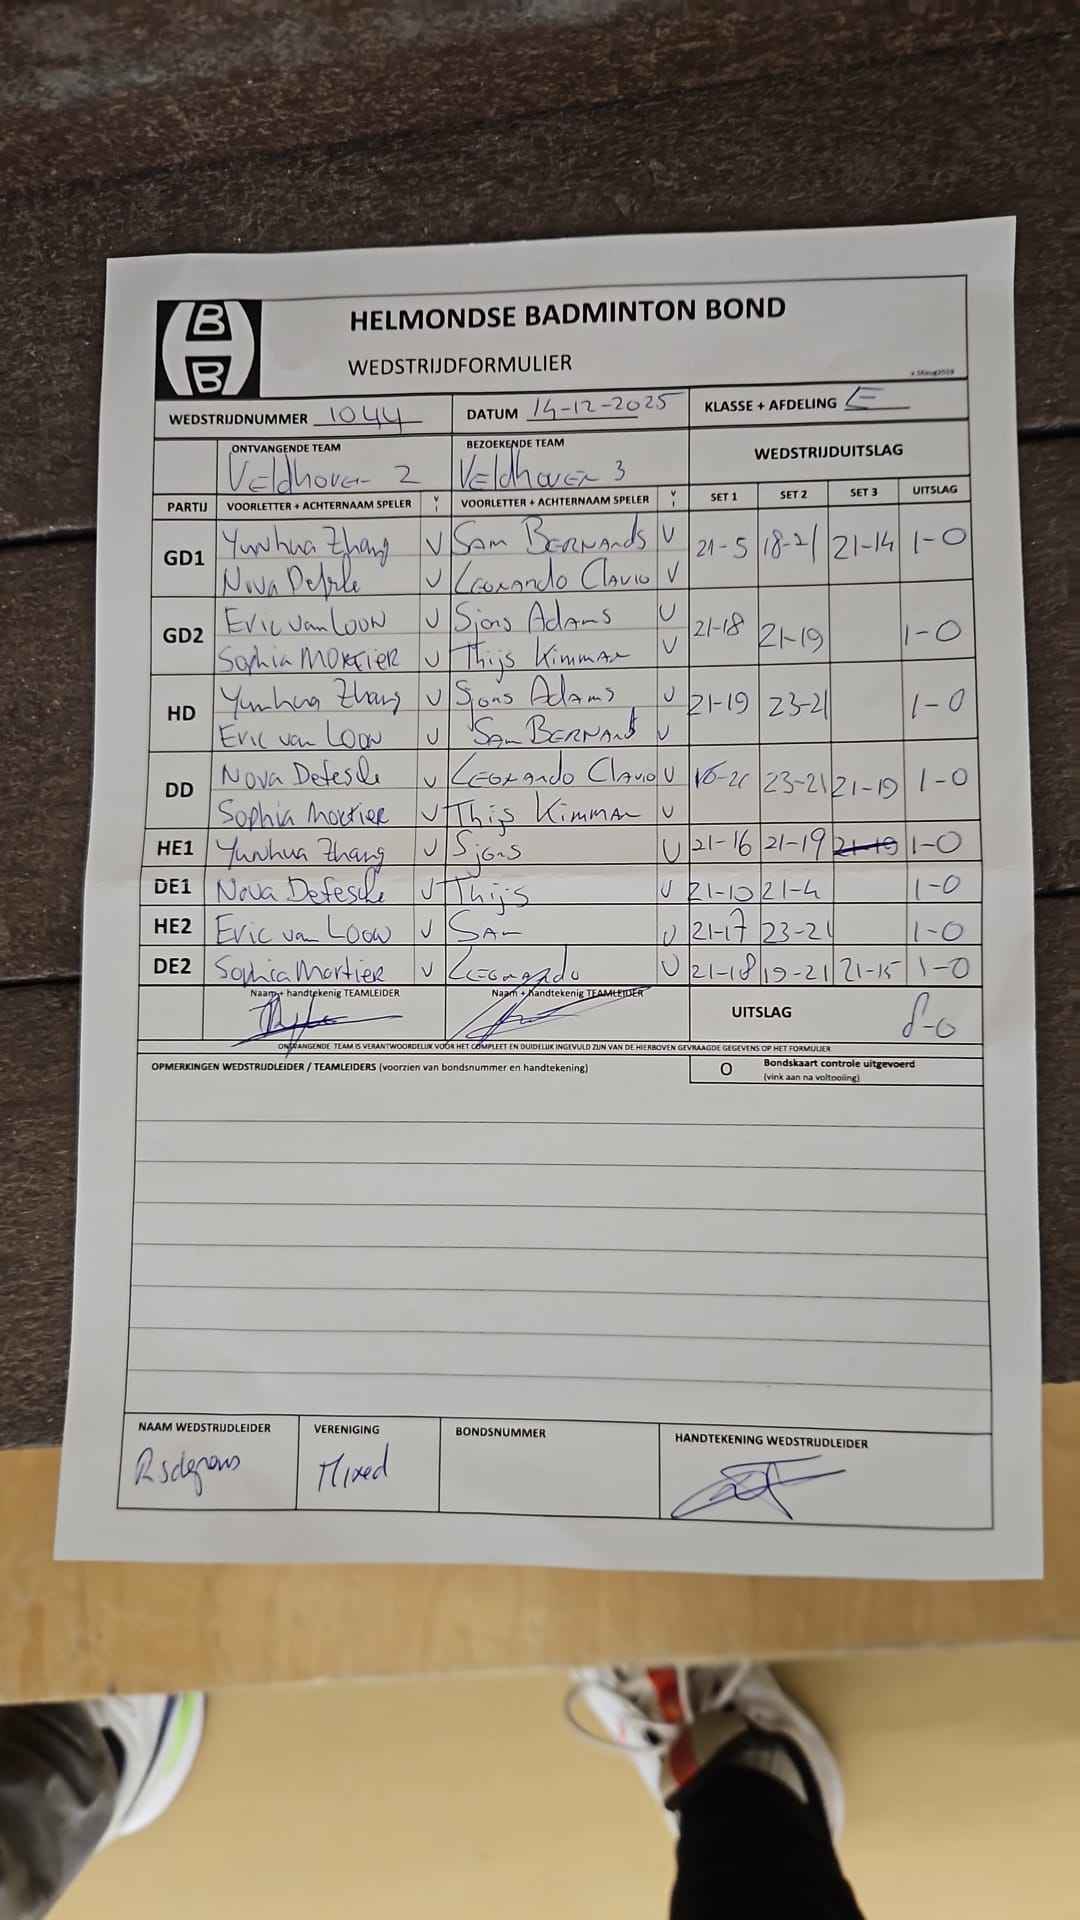 B
B
HELMONDSE BADMINTON BOND
WEDSTRIJDFORMULIER
WEDSTRIJDNUMMER 1044 DATUM 14-12-2025 KLASSE + AFDELING E
ONTVANGENDE TEAM BEZOEKENDE TEAM WEDSTRIJDUITSLAG
Veldhoven 2 Veldhoven 3
PARTIJ VOORLETTER + ACHTERNAAM SPELER V VOORLETTER + ACHTERNAAM SPELER V SET 1 SET 2 SET 3 UITSLAG
GD1 Yunhua Zhang V Sam BERNARDS V 21-5 18-21 21-14 1-0
Nova V Leonardo Clavio V
GD2 Eric van Loon V Sjors Adams V 21-18 21-19 1-0
Sophia Mortier V Thijs Kimman V
HD Yunhua Zhang V Sjors Adams V 21-19 23-21 1-0
Eric van Loon V Sam V
DD Nova Defesche V Leonardo Clavio V 23-21 21-19 1-0
Sophia Mortier V Thijs Kimman V
HE1 Yunhua Zhang V Sjors V 21-16 21-19 21-19 1-0
DE1 Nova Defesche V Thijs V 21-10 21-4 1-0
HE2 Eric van Loon V Sam V 21-17 23-21 1-0
DE2 Sophia Mortier V Leonardo V 21-18 19-21 21-15 1-0
Naam + handtekenig TEAMLEIDER Naam + handtekenig TEAMLEIDER UITSLAG 8-0
ONTVANGENDE TEAM IS VERANTWOORDELIJK VOOR HET COMPLEET EN DUIDELIJK INGEVULD ZIJN VAN DE HIERBOVEN GEVRAAGDE GEGEVENS OP HET FORMULIER
OPMERKINGEN WEDSTRIJDLEIDER / TEAMLEIDERS (voorzien van bondsnummer en handtekening) O Bondskaart controle uitgevoerd
(vink aan na voltooiing)
NAAM WEDSTRIJDLEIDER VERENIGING BONDSNUMMER HANDTEKENING WEDSTRIJDLEIDER
Mixed